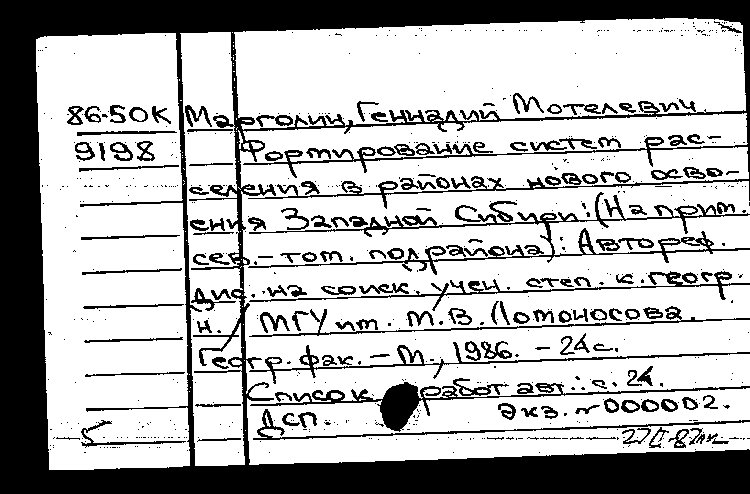 86-50К Марголин, Геннадий Мотелевич.
9198 Формирование систем рас-
селения в районах нового осво-
ения Западной Сибири: (На прим.
сев.-том. подрайона): Автореф.
дис. на соиск. учен. степ. к. геогр.
н. / МГУ им. М.В. Ломоносова.
Геогр. фак. - М., 1986. - 24 с.
Список работ авт.: с. 24.
ДСП. Экз. № 000002.
5